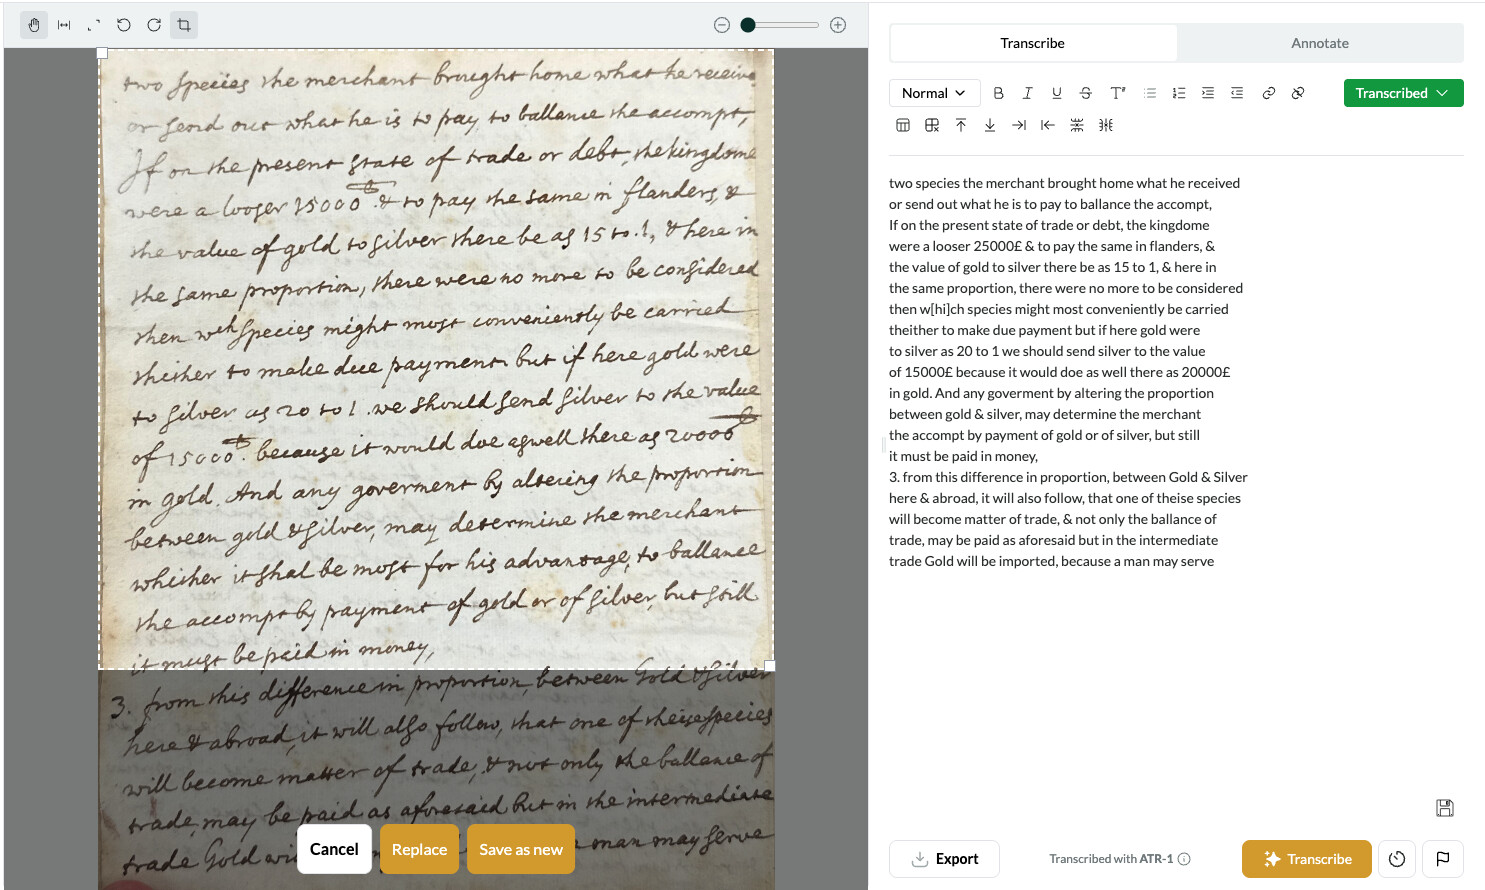 Transcribe
Annotate
Normal
B I U S T
Transcribed
two species the merchant brought home what he receive
or send out what he is to pay to ballance the accompt,
If on the present state of trade or debt, the kingdome
were a looser 15000 £ & to pay the same in flanders, &
the value of gold to silver there be as 15 to .1, & here in
the same proportion, there were no more to be considered
then wch species might most conveniently be carried
thither to make due payment but if here gold were
to silver as 20 to 1 .we should send silver to the value
of 15000 £. because it would doe aswell there as 20000 £
in gold. And any goverment by altering the proportion
between gold & silver, may determine the merchant
whither it shal be most for his advantage, to ballance
the accompt by payment of gold or of silver, but still
it must be paid in money,
3. from this difference in proportion, between Gold & Silver
here & abroad, it will also follow, that one of theise species
will become matter of trade, & not only the ballance of
trade, may be paid as aforesaid but in the intermediate
trade Gold wi
man may serve
Cancel
Replace
Save as new
two species the merchant brought home what he received
or send out what he is to pay to ballance the accompt,
If on the present state of trade or debt, the kingdome
were a looser 25000£ & to pay the same in flanders, &
the value of gold to silver there be as 15 to 1, & here in
the same proportion, there were no more to be considered
then w[hi]ch species might most conveniently be carried
theither to make due payment but if here gold were
to silver as 20 to 1 we should send silver to the value
of 15000£ because it would doe as well there as 20000£
in gold. And any goverment by altering the proportion
between gold & silver, may determine the merchant
the accompt by payment of gold or of silver, but still
it must be paid in money,
3. from this difference in proportion, between Gold & Silver
here & abroad, it will also follow, that one of theise species
will become matter of trade, & not only the ballance of
trade, may be paid as aforesaid but in the intermediate
trade Gold will be imported, because a man may serve
Export
Transcribed with ATR-1
Transcribe